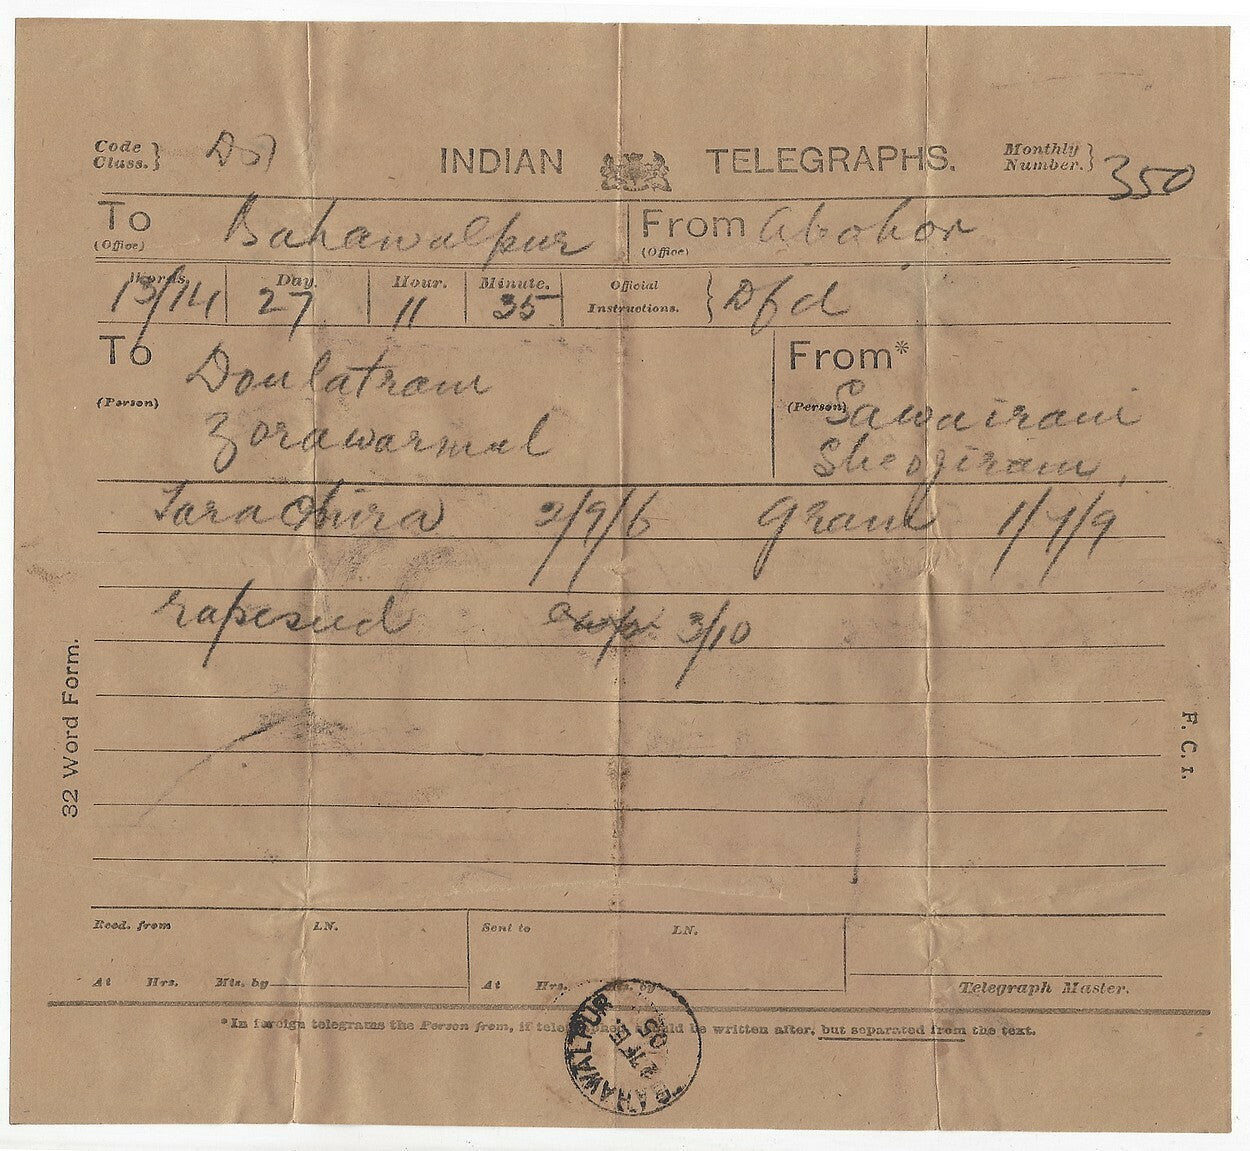 Code Class.} INDIAN TELEGRAPHS. Monthly Number.} 350
To (Office) Bahawalpur From (Office) Abohor
Words. Day. Hour. Minute. Official Instructions.} Dfd
13/14 27 11 35
To (Person) Doulatram From* (Person) Sawairam
Zorawarmal Sheojiram
2/9/6 Gram 1/7/9
3/10
32 Word Form.
F. C. I.
Recd. from LN. Sent to LN.
At Hrs. Mts. by At Hrs. Mts. by Telegraph Master.
*In foreign telegrams the Person from, if be written after, but separated from the text.
BAHAWALPUR
27 FE. 05